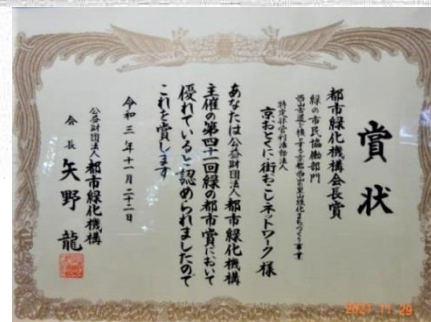 賞状
都市緑化機構会長賞
緑の市民協働部門
西山古道を核とする京都西山の里山緑化まちづくり事業
特定非営利活動法人
京おとくに・街おこしネットワーク 様
あなたは公益財団法人都市緑化機構
主催の第四十一回緑の都市賞において
優れていると認められましたので
これを賞します
令和三年十一月二十二日
公益財団法人都市緑化機構
会長 矢野 龍
2021 11 29